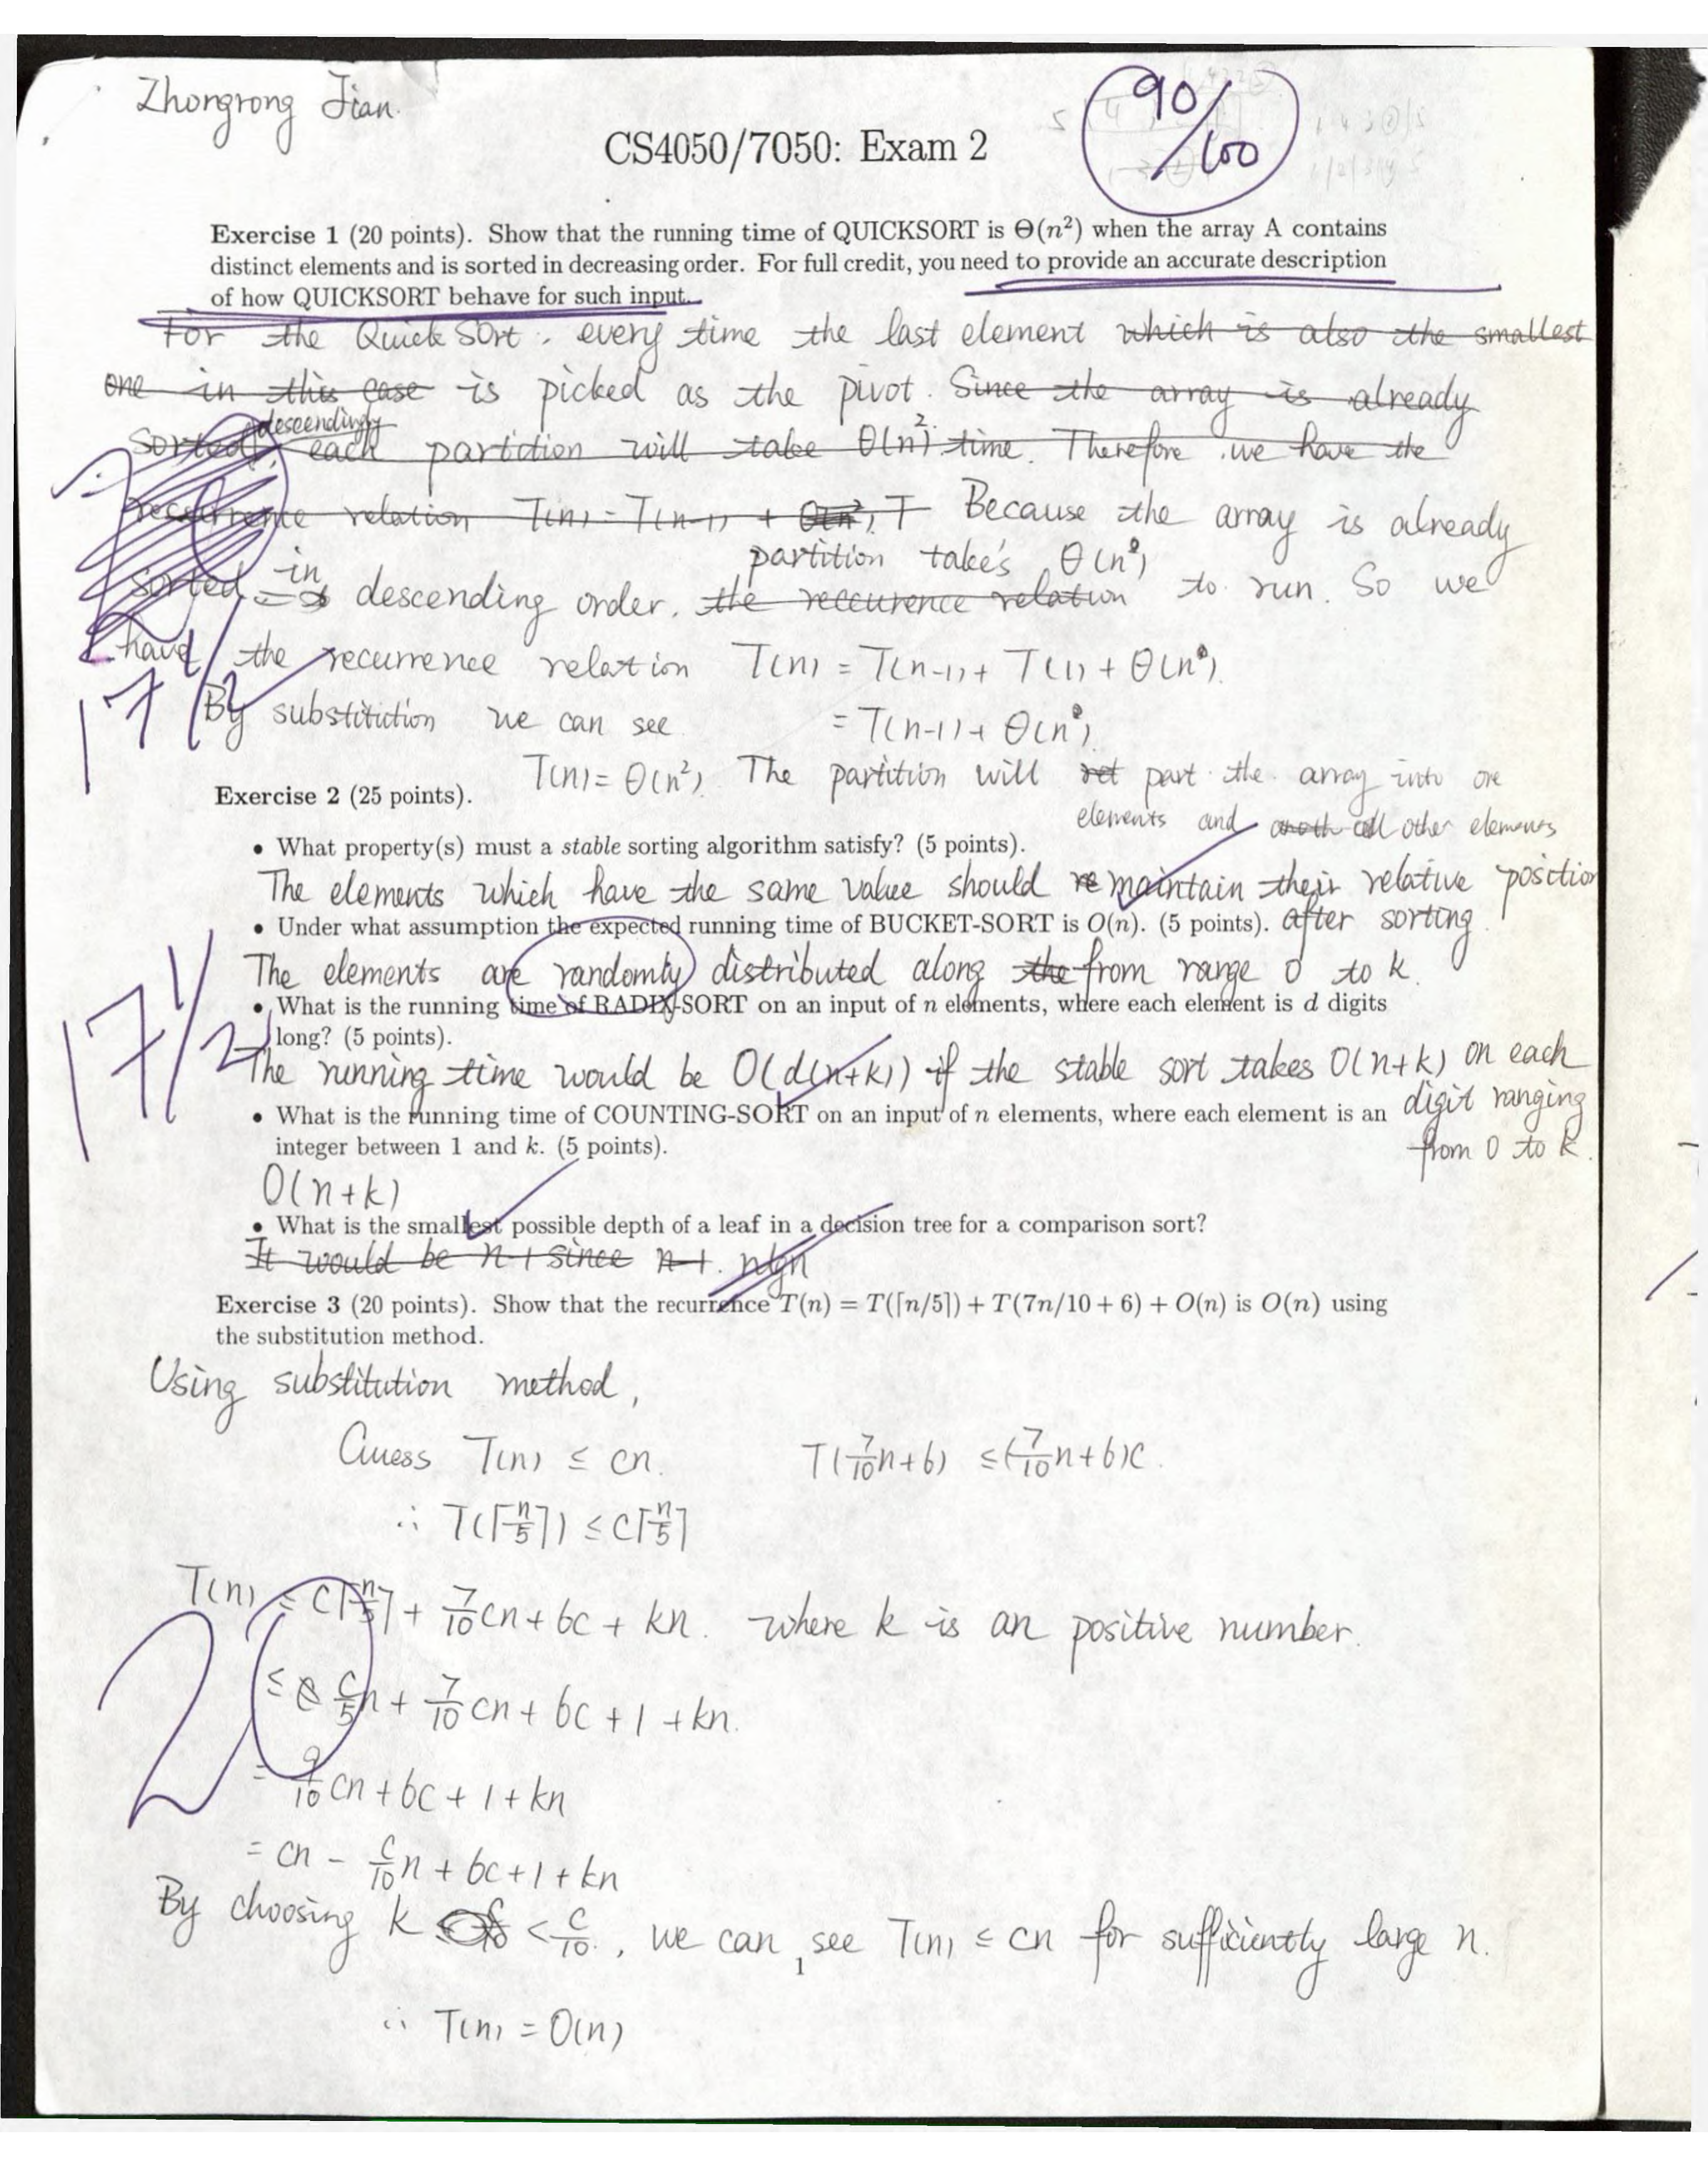 Zhongrong Jian.
90/100
CS4050/7050: Exam 2
Exercise 1 (20 points). Show that the running time of QUICKSORT is Θ(n²) when the array A contains
distinct elements and is sorted in decreasing order. For full credit, you need to provide an accurate description
of how QUICKSORT behave for such input.
For the Quick Sort, every time the last element which is also the smallest
one in this case is picked as the pivot. Since the array is already
sorted descendingly each partition will take Θ(n²) time. Therefore we have the
reccurrence relation T(n) = T(n-1) + T Because the array is already
partition takes Θ(n)
sorted in descending order. the reccurence relation to run. So we
have the recurrence relation T(n) = T(n-1) + T(1) + Θ(n).
17
By substitution we can see = T(n-1) + Θ(n).
T(n) = Θ(n²). The partition will part the array into one
Exercise 2 (25 points).
elements and all other elements
• What property(s) must a stable sorting algorithm satisfy? (5 points).
The elements which have the same value should remaintain their relative position
• Under what assumption the expected running time of BUCKET-SORT is O(n). (5 points). after sorting.
The elements are randomly distributed along the from range 0 to k.
• What is the running time of RADIX-SORT on an input of n elements, where each element is d digits
long? (5 points).
17 1/2
The running time would be O(d(n+k)) if the stable sort takes O(n+k) on each
• What is the running time of COUNTING-SORT on an input of n elements, where each element is an digit ranging
integer between 1 and k. (5 points). from 0 to k.
O(n+k)
• What is the smallest possible depth of a leaf in a decision tree for a comparison sort?
It would be n-1 since n-1. nlgn
Exercise 3 (20 points). Show that the recurrence T(n) = T(⌈n/5⌉) + T(7n/10 + 6) + O(n) is O(n) using
the substitution method.
Using substitution method,
Guess T(n) ≤ cn. T(7/10n+6) ≤ (7/10n+6)c.
∴ T(⌈n/5⌉) ≤ c⌈n/5⌉
T(n) ≤ c⌈n/5⌉ + 7/10cn + 6c + kn. where k is an positive number.
≤ c/5n + 7/10cn + 6c + 1 + kn.
= 9/10cn + 6c + 1 + kn
= cn - c/10n + 6c + 1 + kn
By choosing k < c/10, we can see T(n) ≤ cn for sufficiently large n.
1
∴ T(n) = O(n)